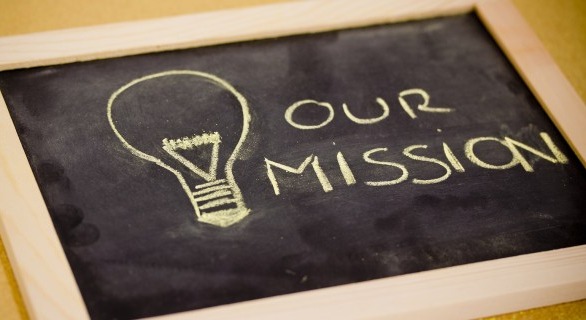 OUR
MISSION